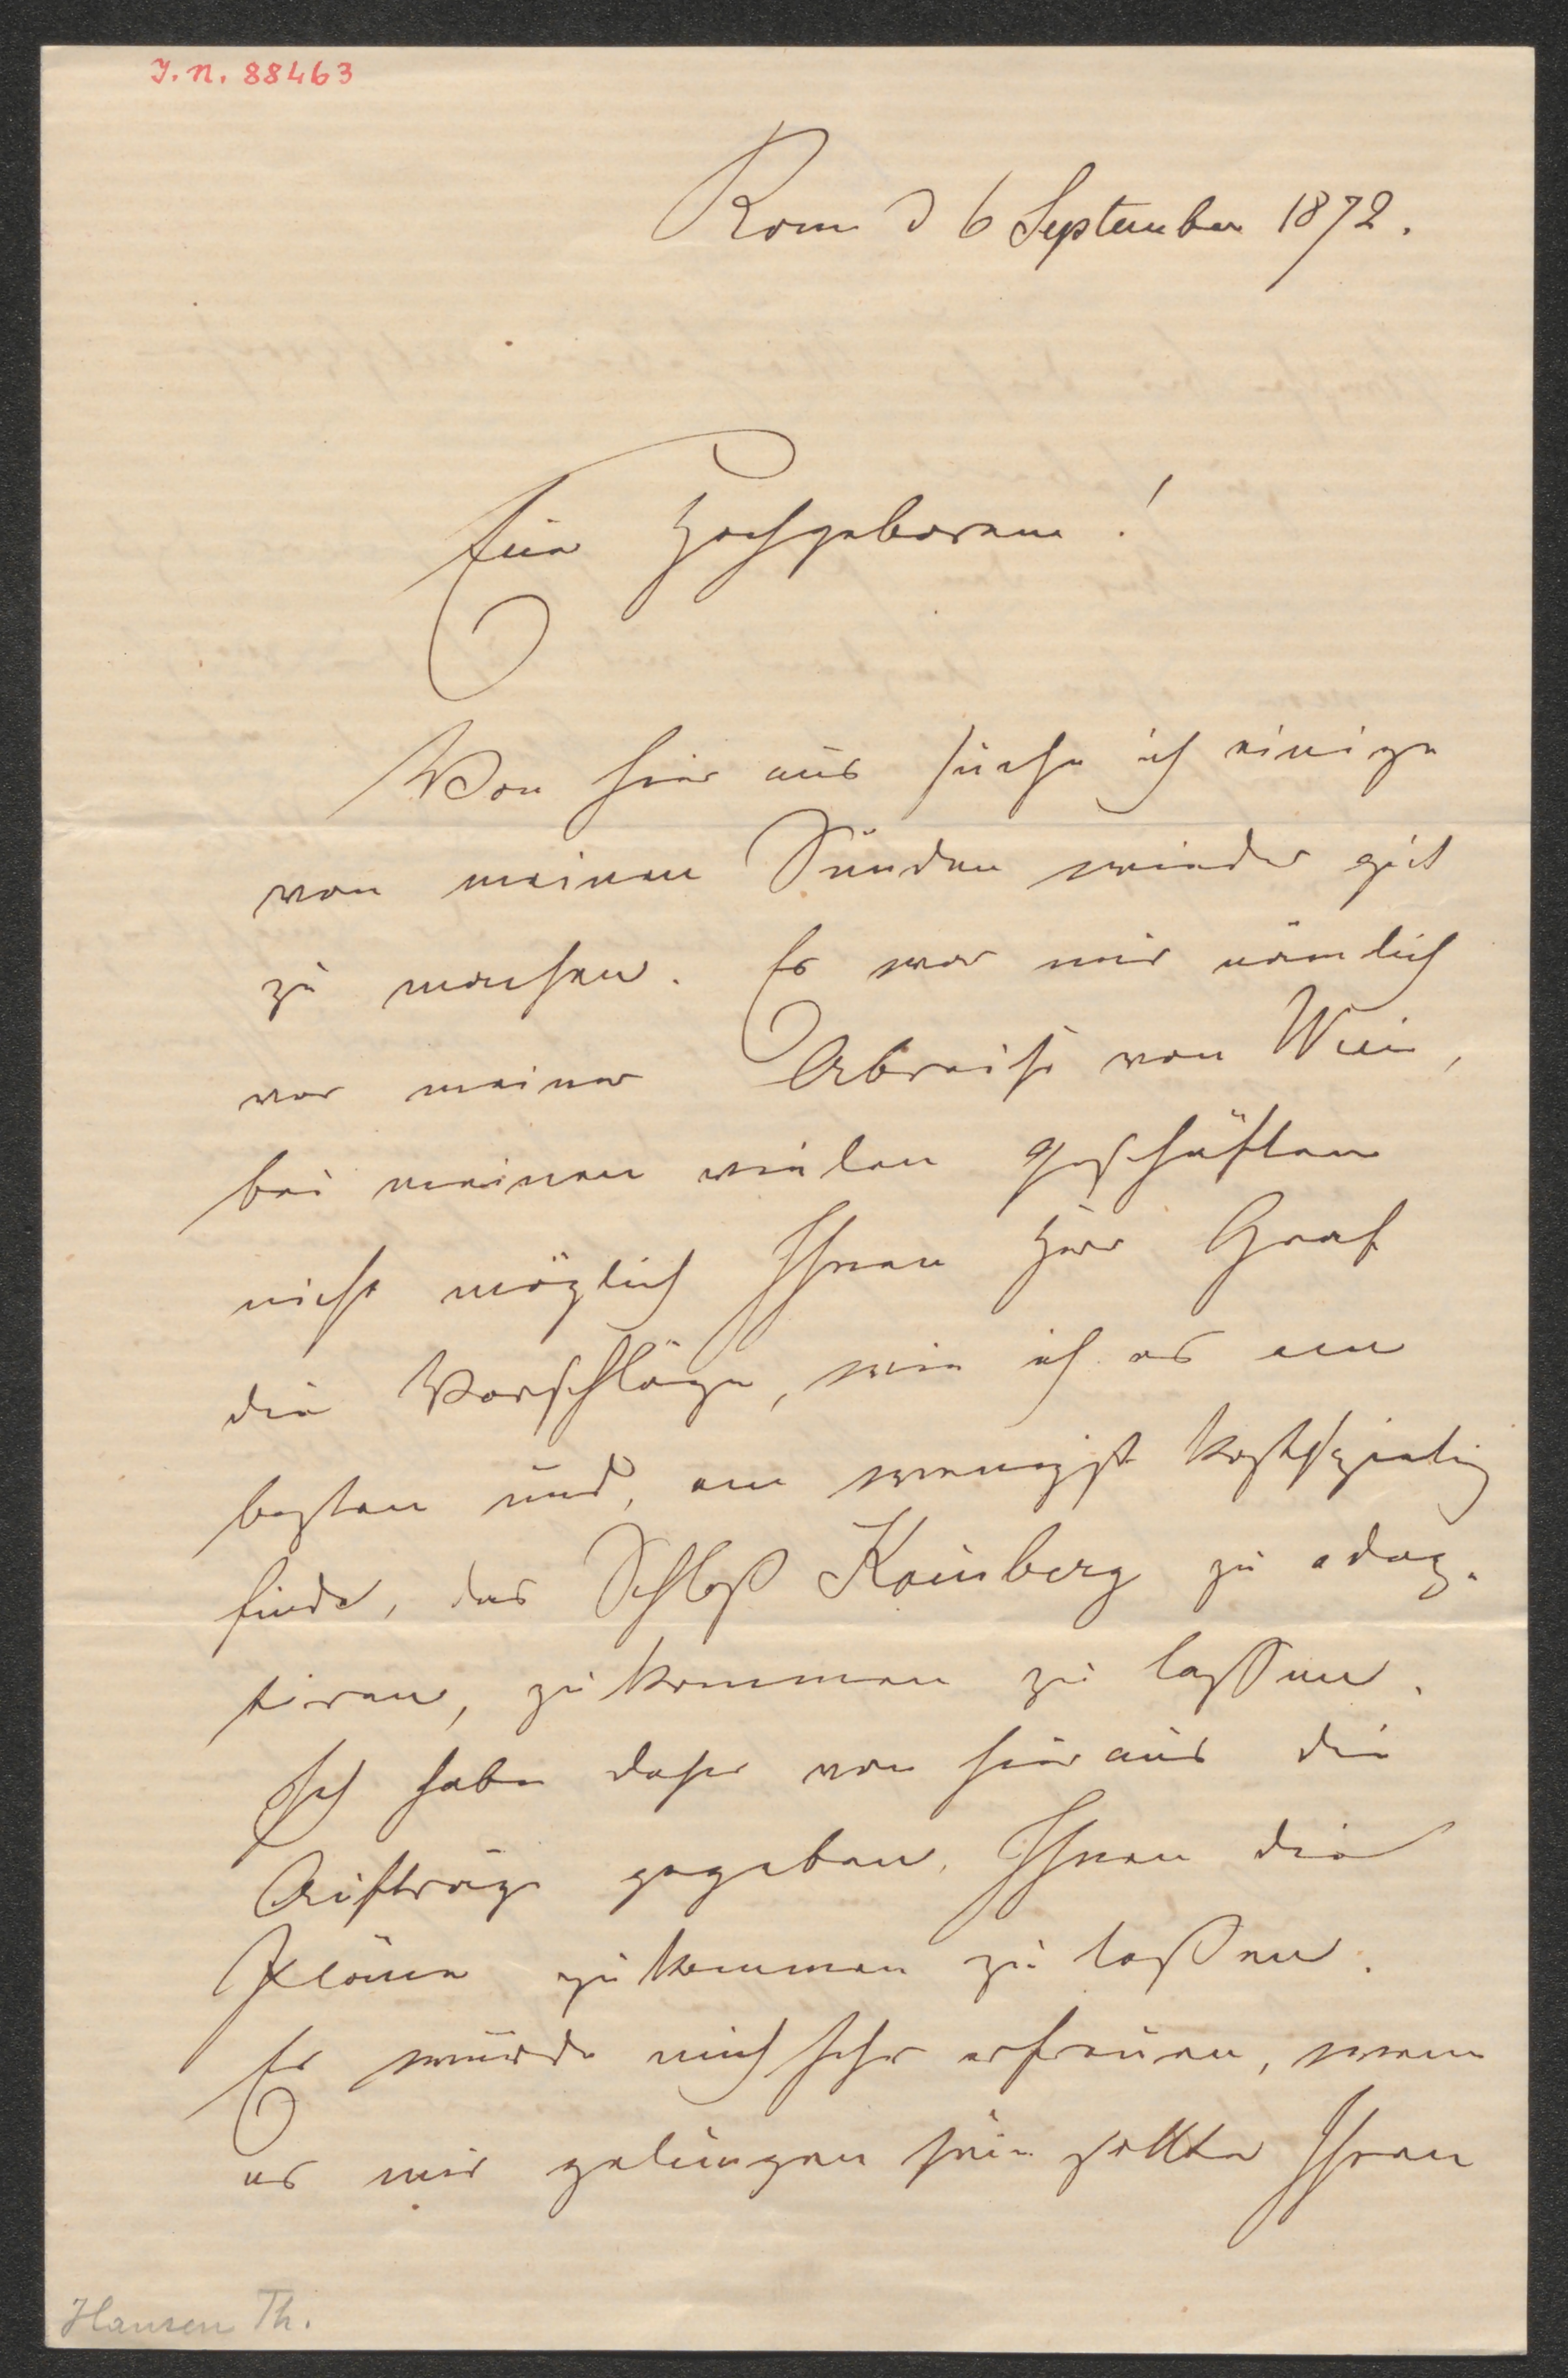 J. N. 88463
Rom d 6 September 1872.
Euer Hochgeboren!
Von hier aus suche ich einige
von meinen Sünden wieder gut
zu machen. Es war mir nämlich
vor meiner Abreise von Wien,
bei meinen vielen Geschäften
nicht möglich Ihnen Herr Graf
die Vorschläge, wie ich es am
besten und, am wenigst kostspielig
finde, das Schloß Kainberg zu adap-
tiren, zukommen zu lassen.
Ich habe daher von hieraus die
Aufträge gegeben, Ihnen die
Pläne zukommen zu laßen.
Es würde mich sehr erfreuen, wenn
es mir gelungen sein sollte Ihren
Hansen Th.